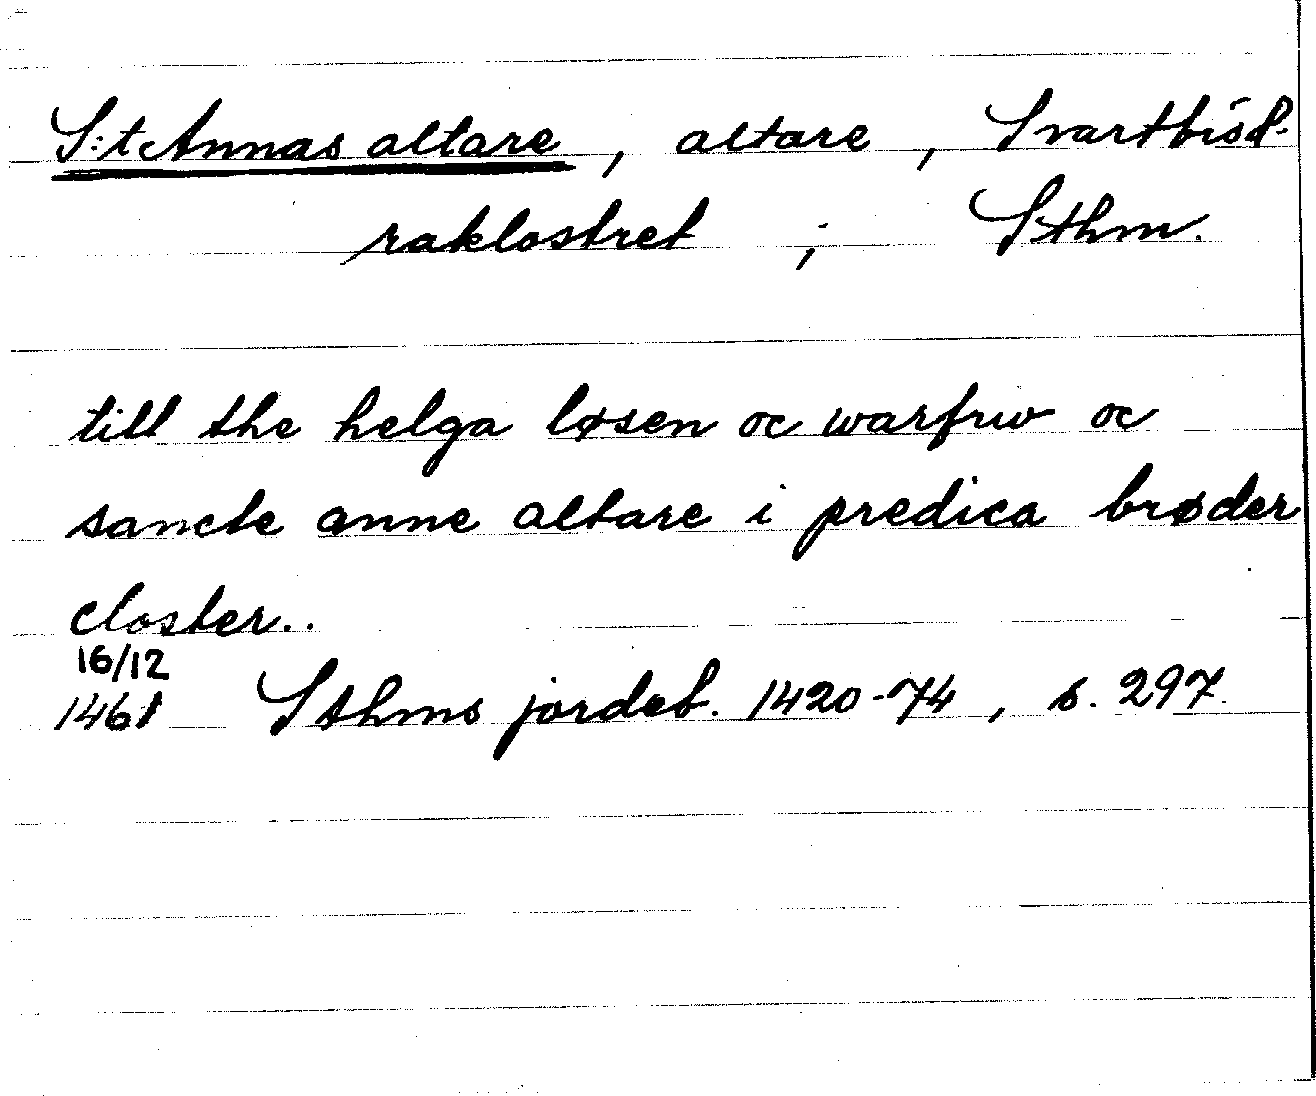 S:t Annas altare, altare, Svartbröd-
raklostret; Sthm.
till the helga løsen oc warfrw oc
sancte anne altare i predica brøder
closter..
16/12
1461 Sthms jordeb. 1420-74, s. 297.